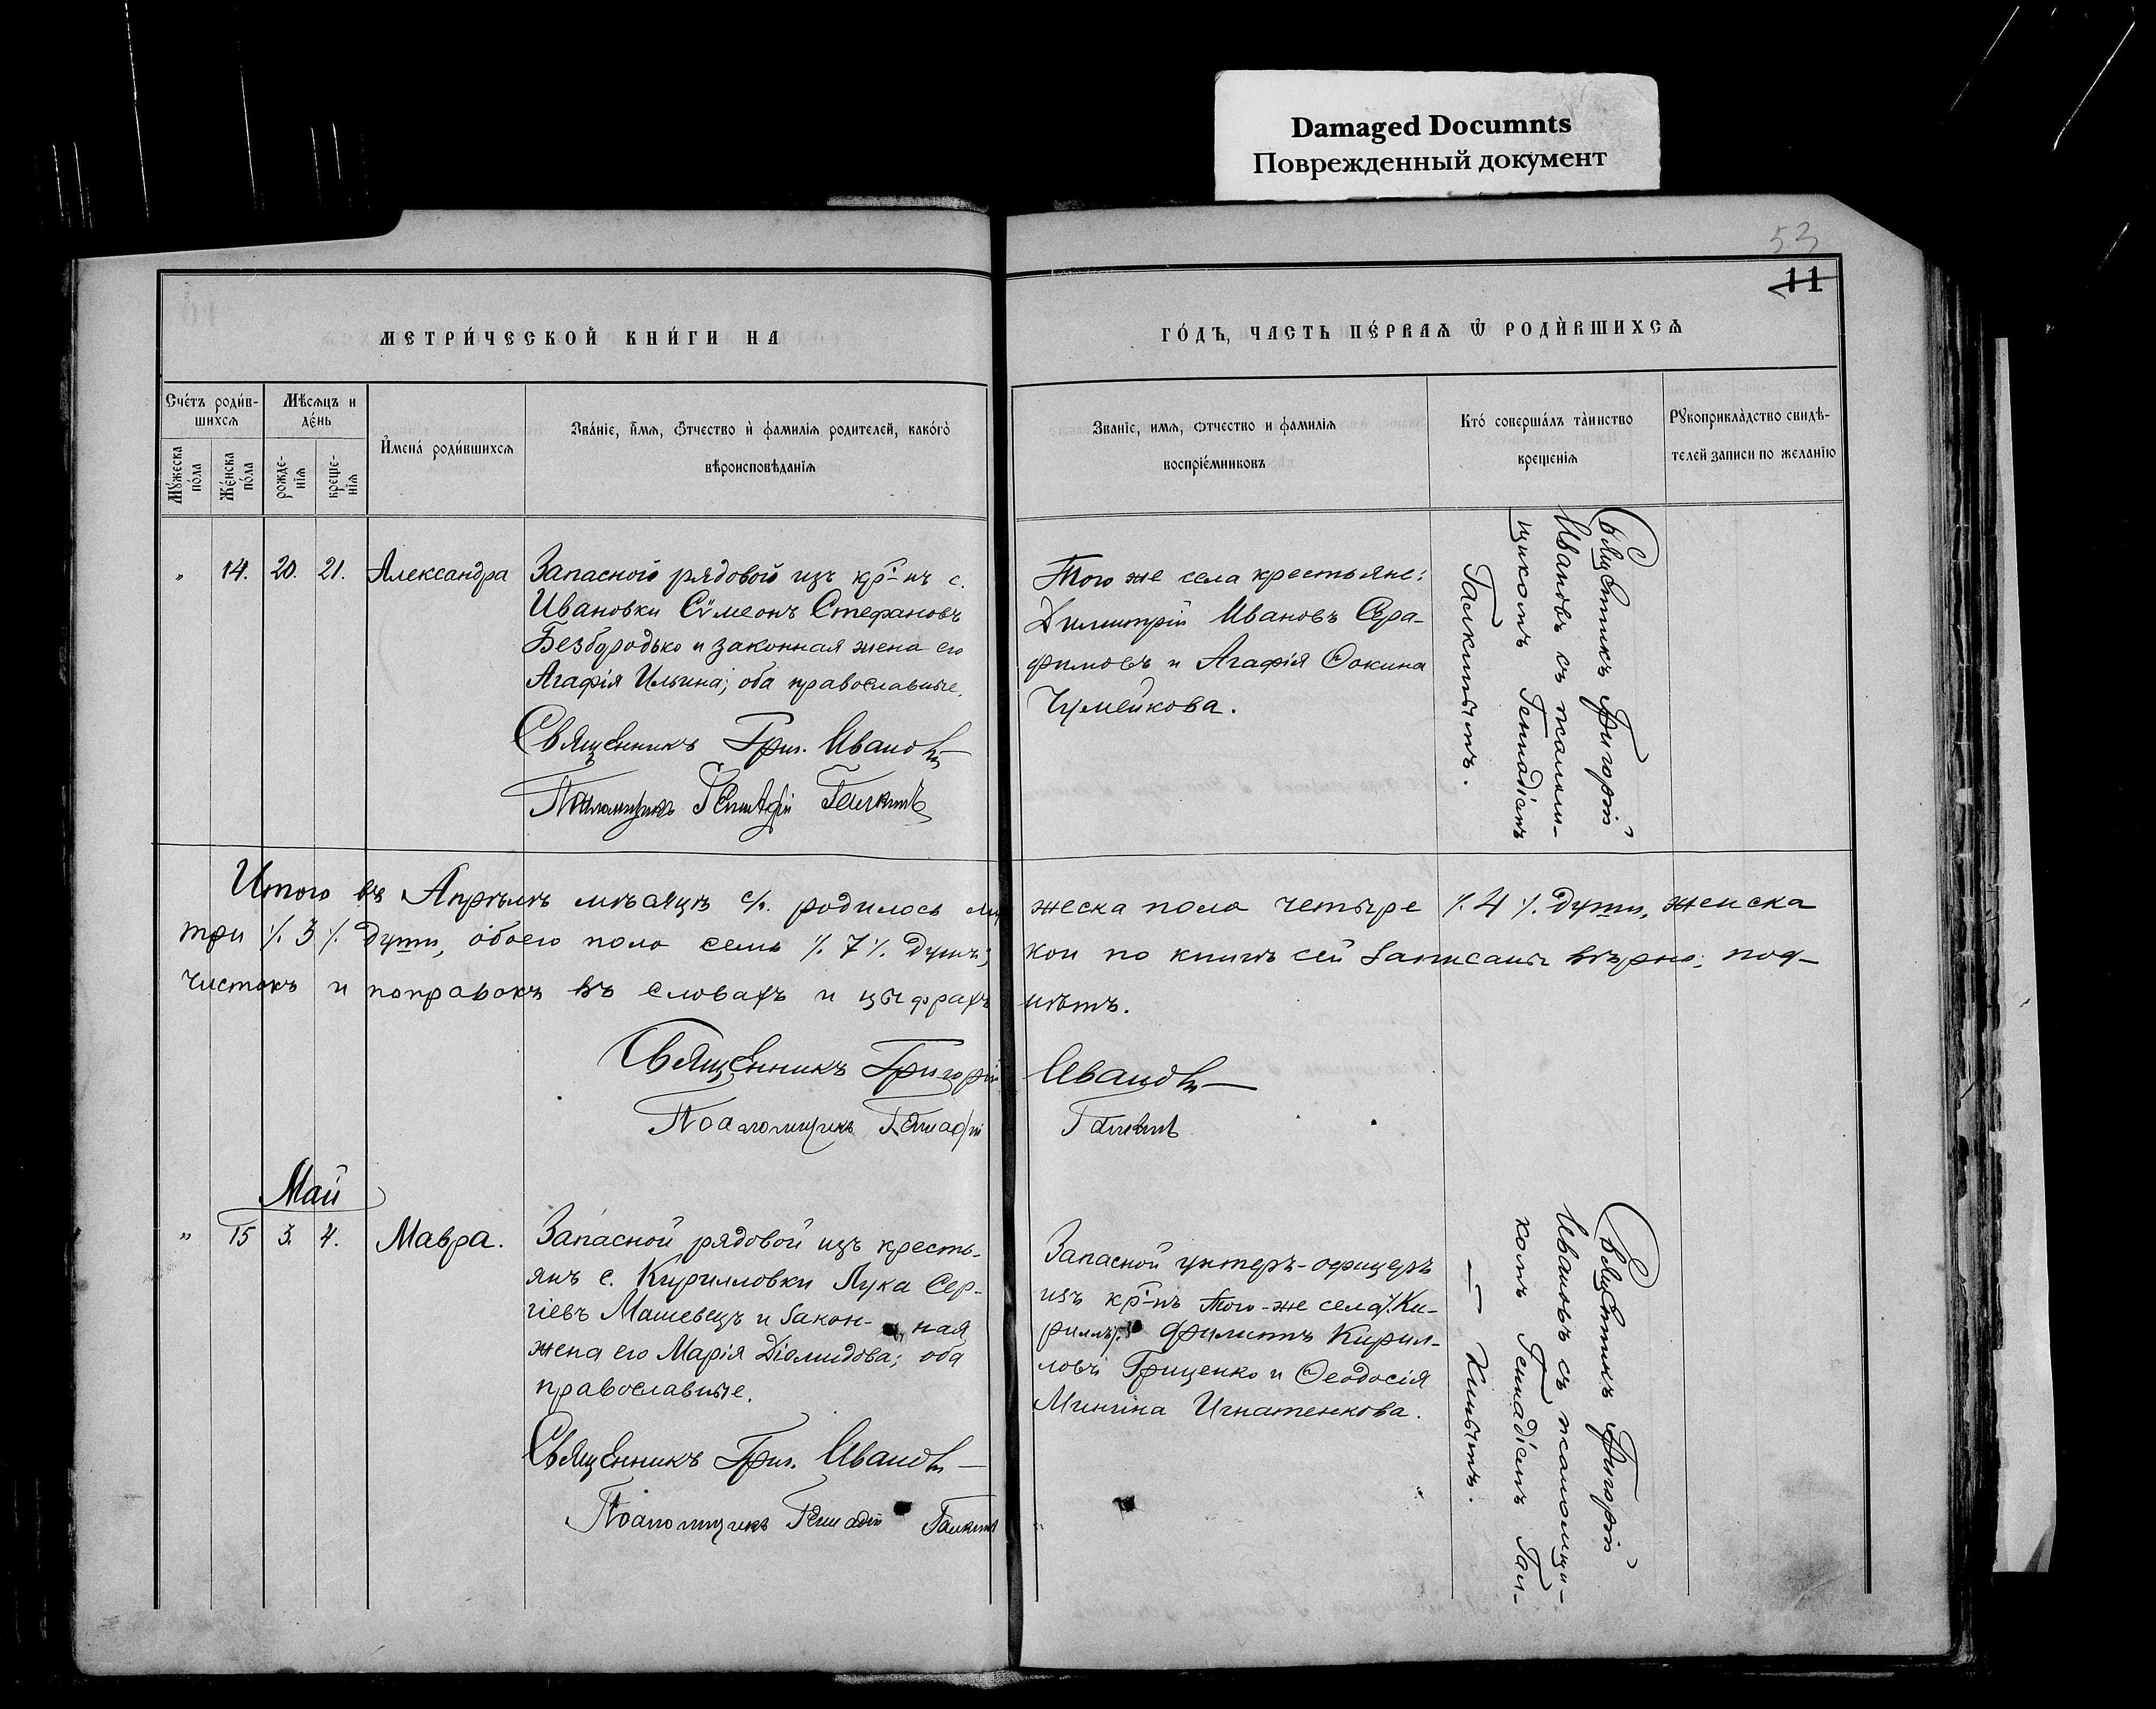 Damaged Documnts
Поврежденный документ
53
11
МЕТРИ́ЧЕСКОЙ КНИ́ГИ НА
ГО́ДЪ, ЧАСТЬ ПЕ́РВАѦ Ѿ РОДИ́ВШИХСѦ
Сче́тъ роди́в-
шихсѧ
Мѣ́сѧцъ и
де́нь
Мꙋ́жеска
по́ла
Же́нска
по́ла
рожде-
нїѧ
креще-
нїѧ
И҆мена̀ роди́вшихсѧ
Зва́нїе, и҆́мѧ, ѻ҆́тчество и҆ фами́лїѧ роди́телей, како́гѡ
вѣроисповѣ́данїѧ
Званїе, имѧ, ѻтчество и фамилїѧ
воспрїе́мниковъ
Кто́ соверша́лъ та́инство
крещенїѧ
Рꙋкоприкла́дство свидѣ-
телей записи по желанїю
" 14. 20. 21. Александра
Запасной рядовой изъ кр-нъ с.
Ивановки Сѵмеонъ Стефановъ
Безбородько и законная жена его
Агафія Ильина; оба православные.
Священникъ Григ. Ивановъ
Псаломщикъ Геннадій Галкинъ
Того же села крестьяне:
Димитрій Ивановъ Сера-
фимовъ и Агафія Ѳокина
Чумейкова.
Священникъ Григорій
Ивановъ съ псалом-
щикомъ Геннадіемъ
Галкинымъ.
Итого въ Апрѣлѣ мѣсяцѣ с/г. родилось му жеска пола четыре ٪ 4 ٪ души, женска
три ٪ 3 ٪ души, обоего пола семь ٪ 7 ٪ душъ; кои по книгѣ сей записаны вѣрно; под-
чистокъ и поправокъ въ словахъ и цыфрахъ нѣтъ.
Священникъ Григорій Ивановъ
Псаломщикъ Геннадій Галкинъ
Май
" 15 3. 4. Мавра.
Запасной рядовой изъ кресть-
янъ с. Кирилловки Лука Сер-
гіевъ Машевецъ и закон-ная
жена его Марія Діомидова; оба
православные.
Священникъ Григ. Ивановъ
Псаломщикъ Геннадій Галкинъ
Запасной унтеръ-офицеръ
изъ кр-нъ того-же села
Филиппъ Кирил-
ловъ Гриценко и Ѳеодосія
Минина Игнатенкова.
Священникъ Григорій
Ивановъ съ псаломщи-
комъ Геннадіемъ Гал-
кинымъ.